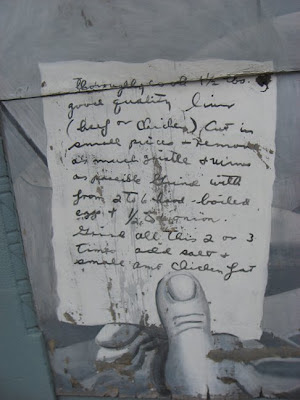 Thoroughly broil 1½ lbs.
good quality liver
(beef or chicken) Cut in
small pieces + remove
as much gristle + veins
as possible Grind with
from 2 to 6 hard-boiled
eggs + ½ onion.
Grind all this 2 or 3
times add salt +
small amt chicken fat